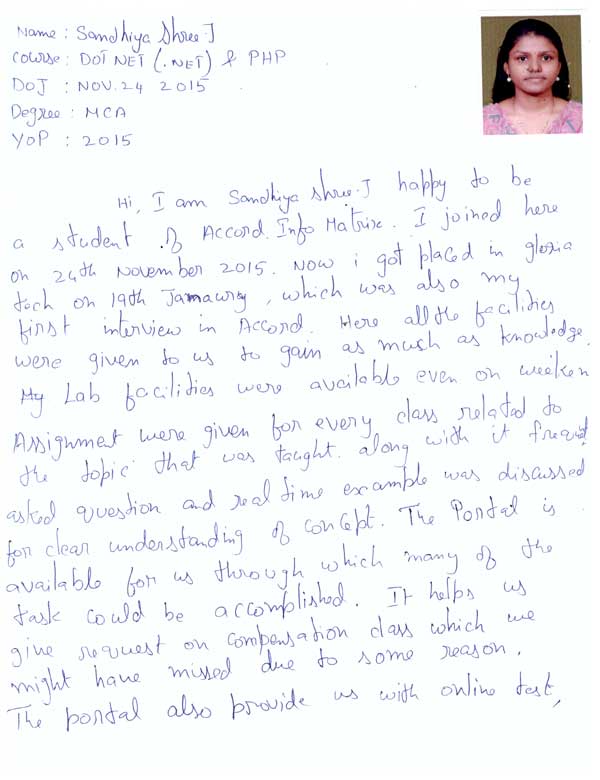 Name : Sandhiya Shree.J
Course : DOT NET (.NET) & PHP
DOJ : NOV.24 2015
Degree : MCA
YOP : 2015
Hi, I am Sandhiya Shree.J happy to be
a student of Accord Info Matrix. I joined here
on 24th November 2015. Now i got placed in gloria
tech on 19th Jamawry, which was also my
first interview in Accord. Here all the facilities
were given to us to gain as much as knowledge.
My Lab facilities were available even on weeken
Assignment were given for every class related to
the topic that was taught. along with it frequent
asked question and real time example was discussed
for clear understanding of concept. The Portal is
available for us through which many of the
task could be accomplished. It helps us
give request on compensation class which we
might have missed due to some reason.
The portal also provide us with online test,